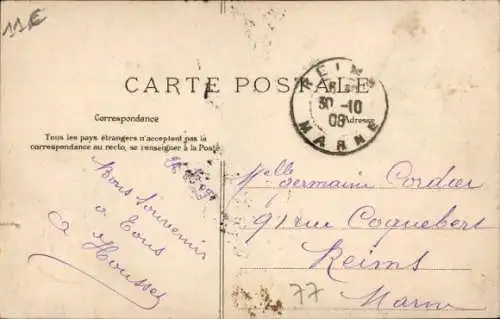 11€
CARTE POSTALE
REIMS
30-10
08
MARNE
Correspondance
Adresse
Tous les pays étrangers n'acceptent pas la
correspondance au recto, se renseigner à la Poste
Bons souvenir
a tous
Mlle Germaine Cordier
91 rue Coquebert
Reims
Marne
77